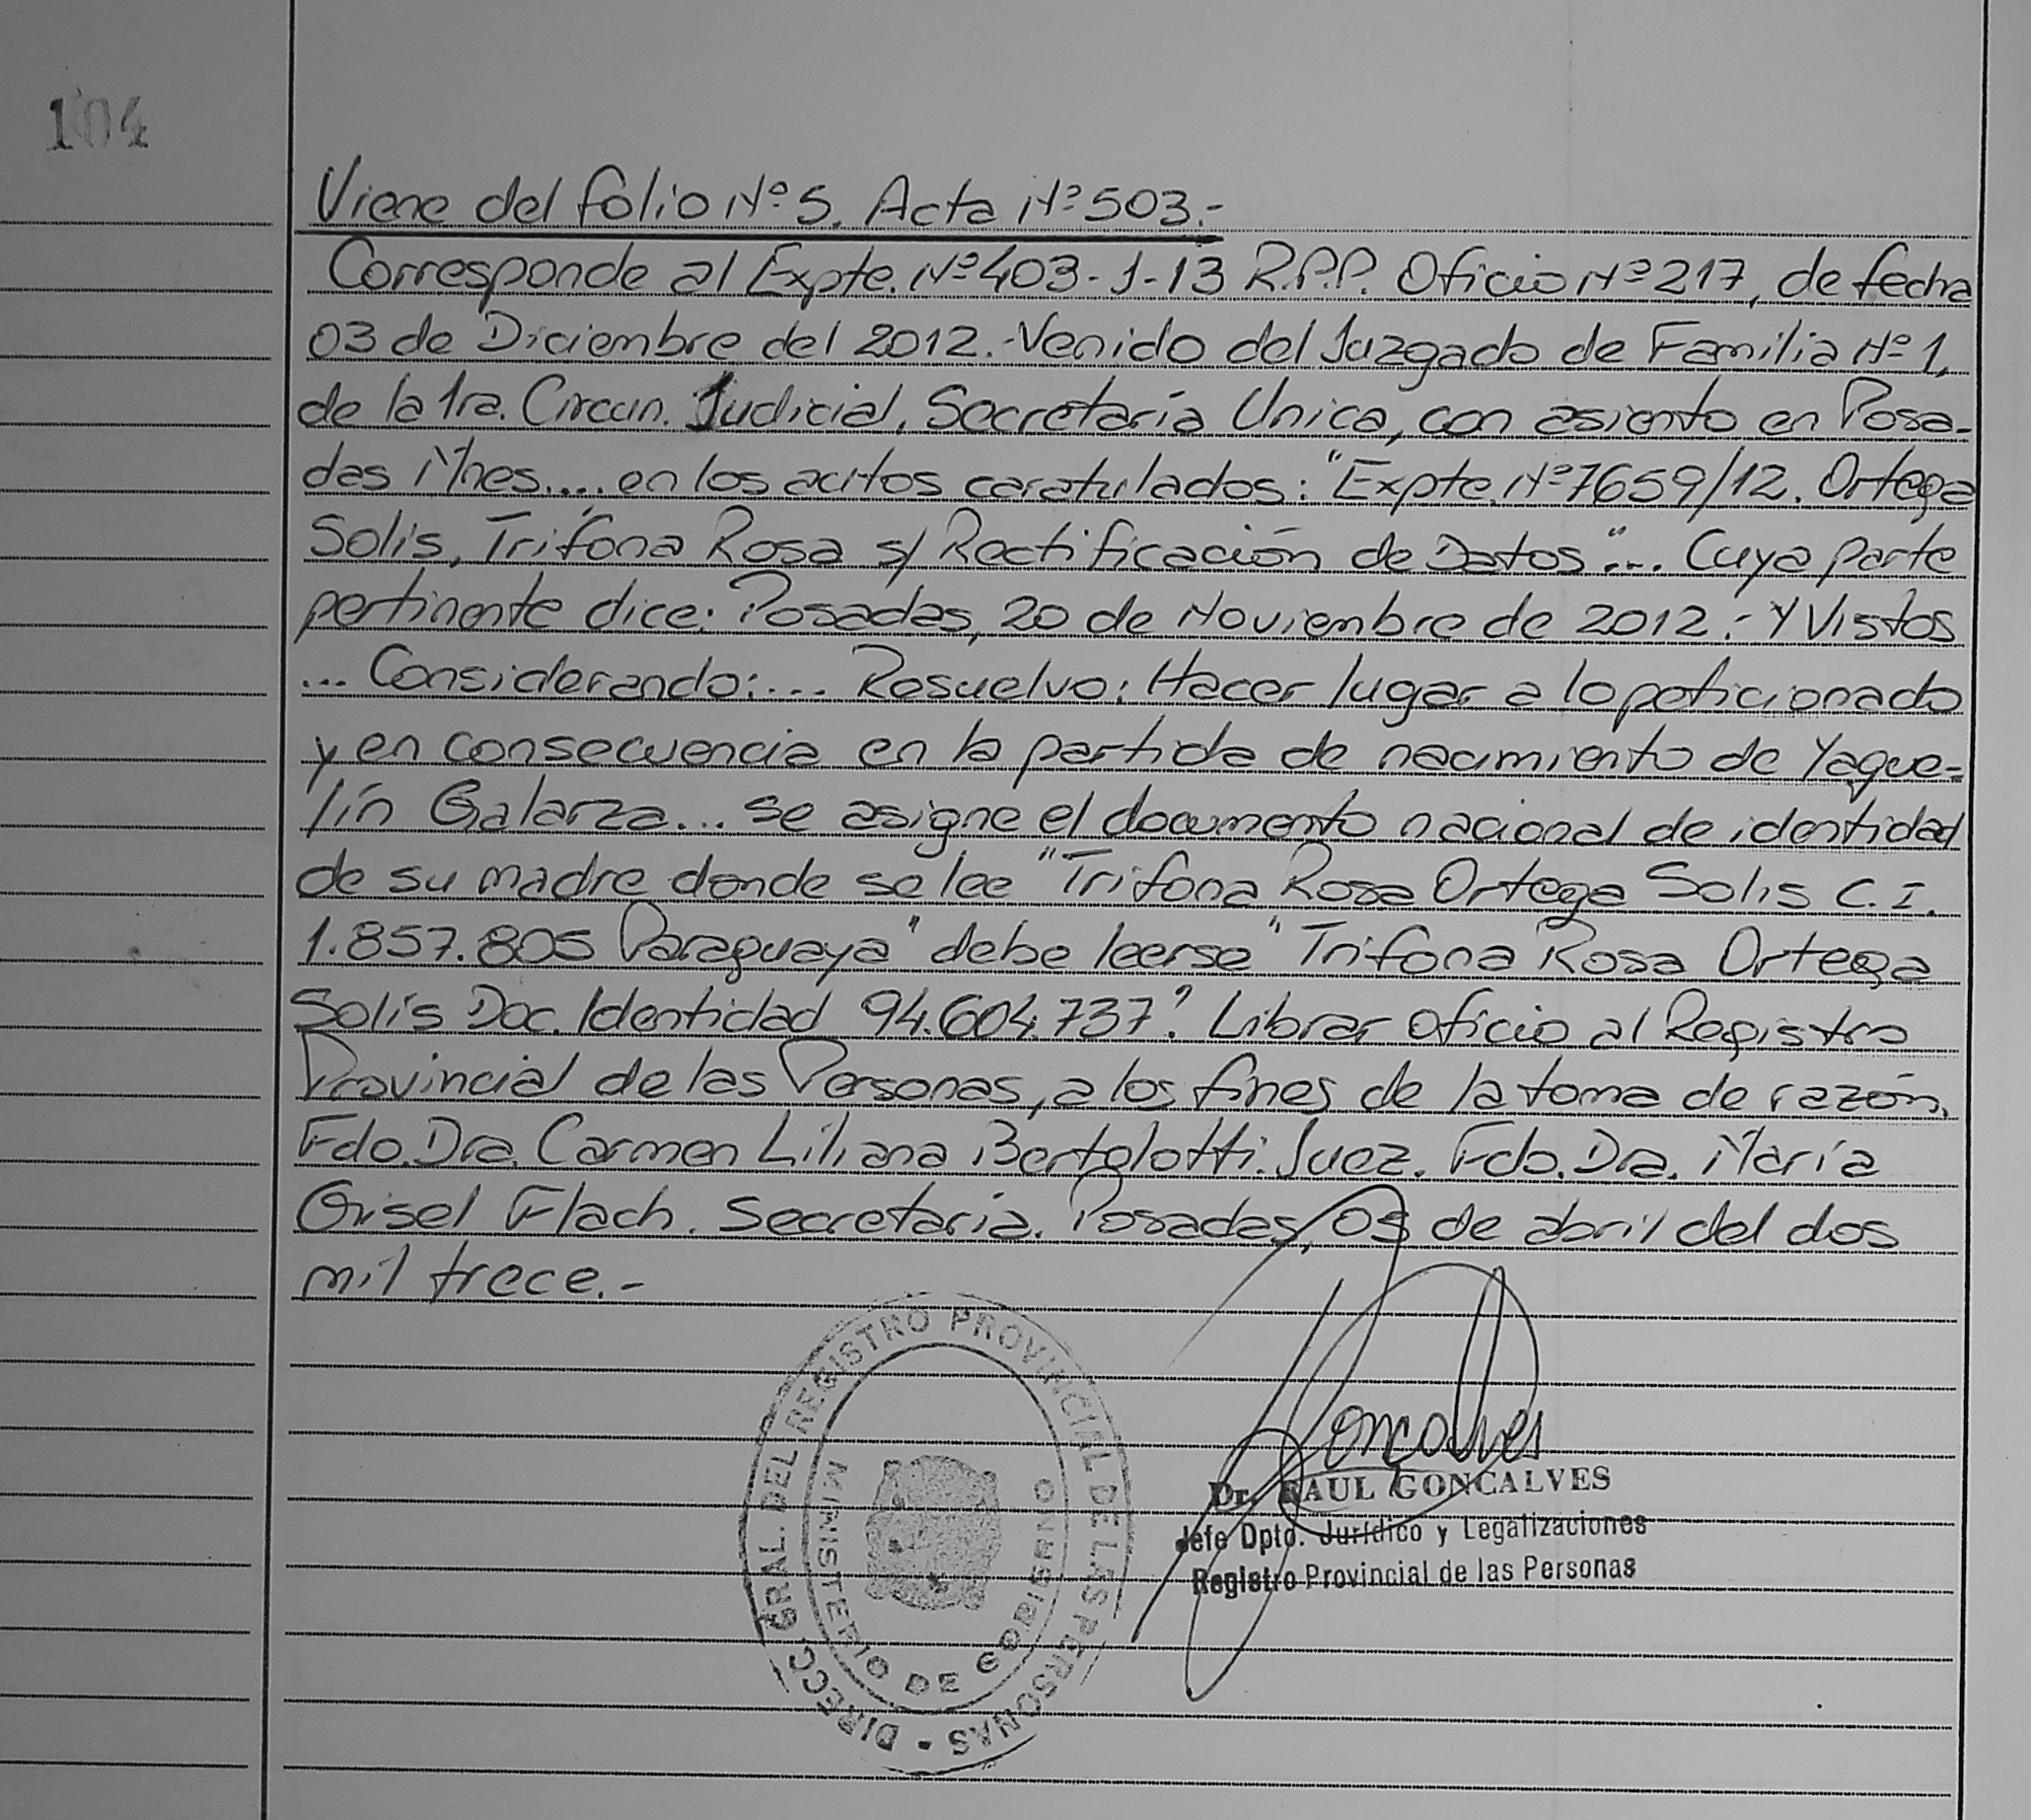 104
Viene del folio Nº 5. Acta Nº 503.-
Corresponde al Expte. Nº 403-1-13 R.P.P. Oficio Nº 217, de fecha
03 de Diciembre del 2012.- Venido del Juzgado de Familia Nº 1,
de la 1ra. Circun. Judicial, Secretaría Unica, con asiento en Posa-
das Mnes.... en los autos caratulados: "Expte. Nº 7659/12. Ortega
Solis, Trifona Rosa s/ Rectificación de Datos"... Cuya parte
pertinente dice: Posadas, 20 de Noviembre de 2012.- Y Vistos
... Considerando:... Resuelvo: Hacer lugar a lo peticionado
y en consecuencia en la partida de nacimiento de Yaque=
lín Galarza... se asigne el documento nacional de identidad
de su madre donde se lee "Trifona Rosa Ortega Solis C.I.
1.857.805 Paraguaya" debe leerse "Trifona Rosa Ortega
Solís Doc. Identidad 94.604.737". Librar oficio al Registro
Provincial de las Personas, a los fines de la toma de razón.
Fdo. Dra. Carmen Liliana Bertolotti. Juez. Fdo. Dra. María
Gisel Flach. Secretaria. Posadas, 05 de abril del dos
mil trece.-
DIRECC. GRAL. DEL REGISTRO PROVINCIAL DE LAS PERSONAS -
MINISTERIO DE GOBIERNO
Goncalves
Dr. RAUL GONCALVES
Jefe Dpto. Jurídico y Legalizaciones
Registro Provincial de las Personas